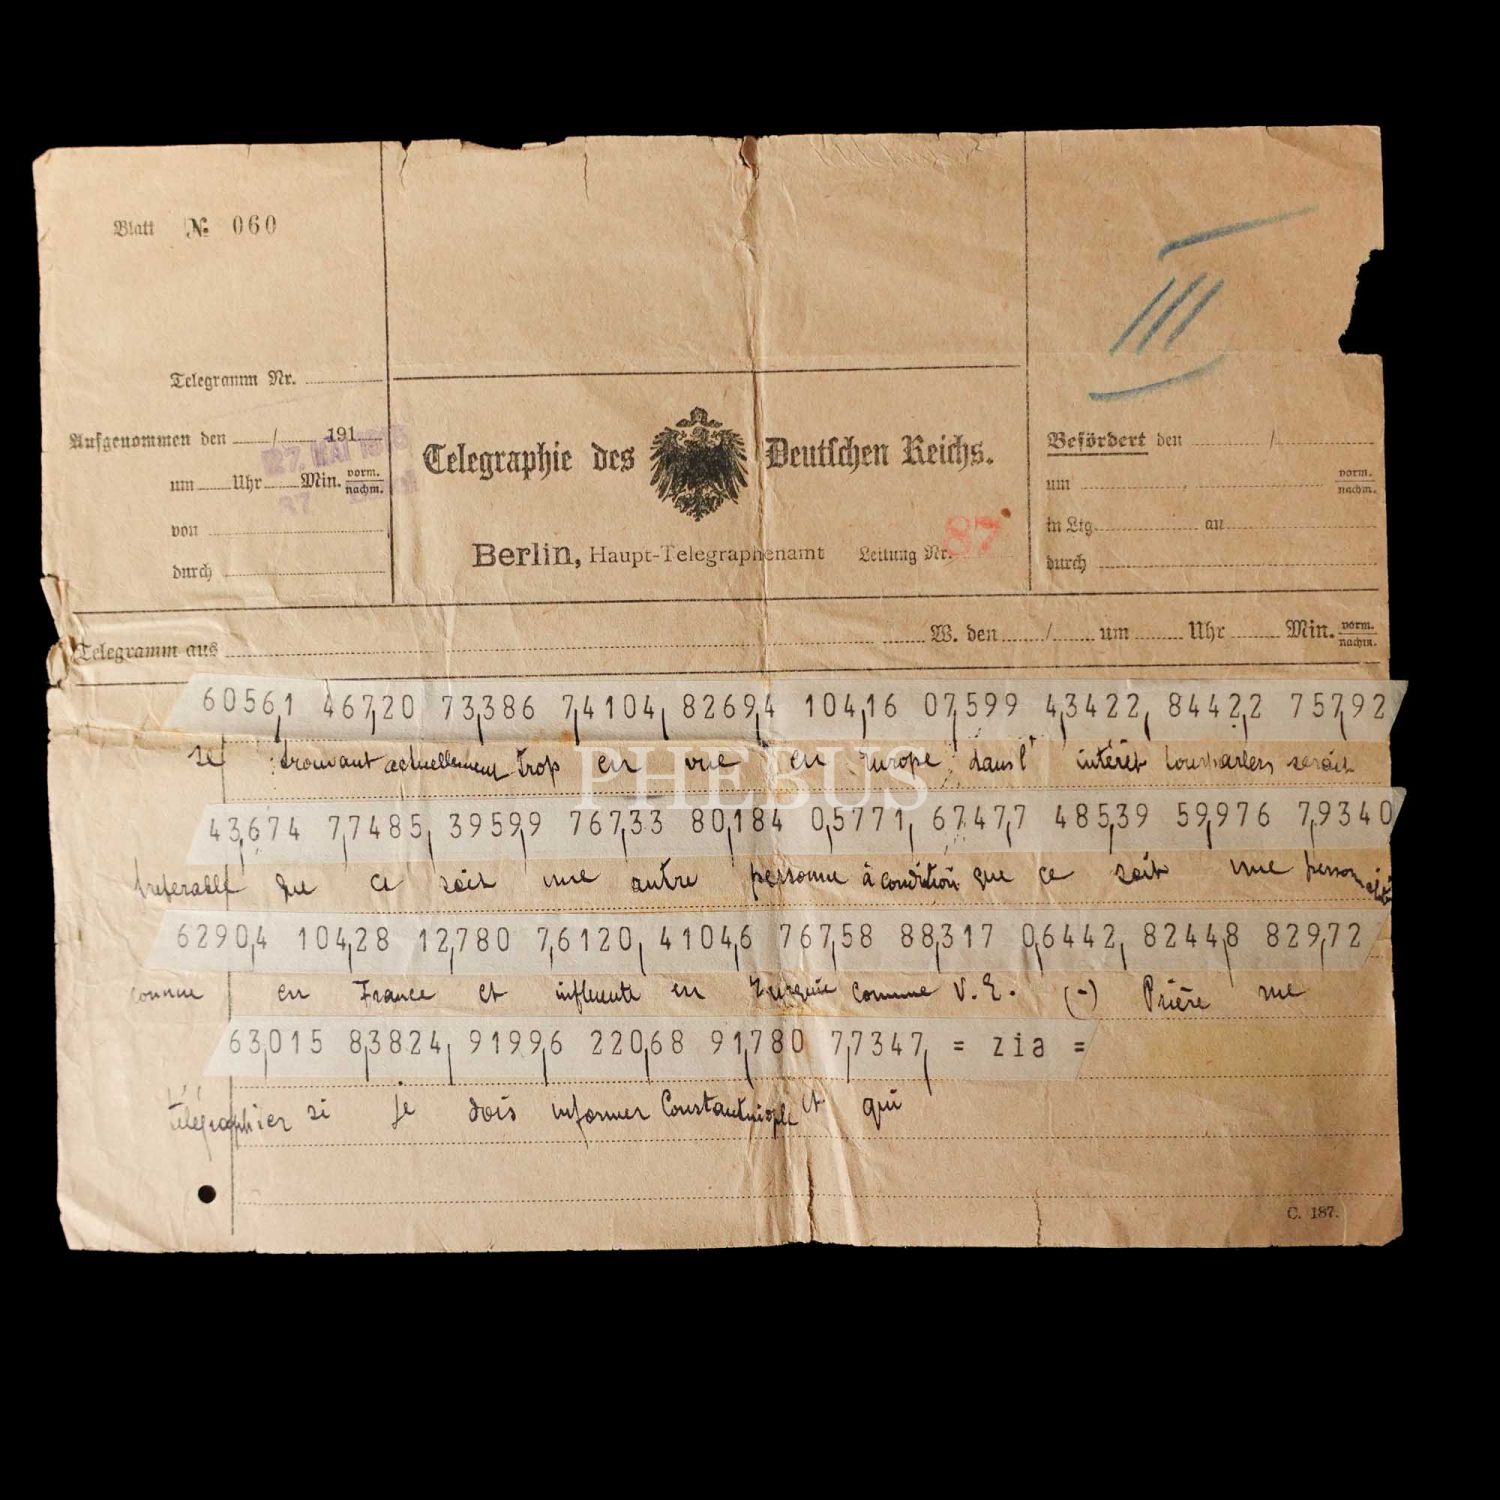 Blatt № 060
III
Telegramm Nr.
Aufgenommen den / 191
27 MAI
um Uhr Min. vorm. nachm.
von
durch
Telegraphie des Deutschen Reichs.
Berlin, Haupt-Telegraphenamt Leitung Nr. 87
Befördert den /
um , vorm. nachm.
in Ltg. an
durch
Telegramm aus W. den / um Uhr Min. vorm. nachm.
6056,1 467,20 73,386 7,4104, 8269,4 104,16 07,599 4,3422, 8442,2 757,92
se trouvant actuellement trop en vue en Europe dans l' intérêt serait
PHEBUS
43,674 7,7485, 3959,9 767,33 80,184 0,5771, 6747,7 485,39 59,976 7,9340
préférable que ce soit une autre personne à condition que ce soit une
6290,4 104,28 12,780 7,6120, 4104,6 767,58 88,317 0,6442, 8244,8 829,72
connue en France et influente en Turquie comme V. E. (-) Prière me
63,015 8,3824, 9199,6 220,68 91,780 7,7347, = zia =
télégraphier si je dois informer Constantinople et qui
C. 187.